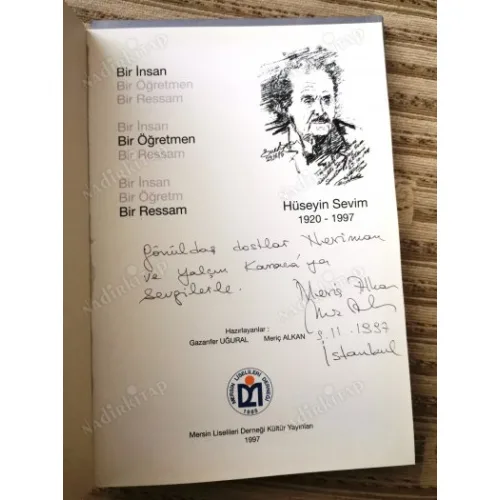 Bir İnsan
Bir Öğretmen
Bir Ressam
Bir İnsan
Bir Öğretmen
Bir Ressam
Bir İnsan
Bir Öğretm
Bir Ressam
Hüseyin Sevim
1920 - 1997
Gönüldaş dostlar Neriman
ve Yalçın Karara'ya
Sevgilerle.
Meriç Alkan
9.11.1997
İstanbul
Hazırlayanlar :
Gazanfer UĞURAL Meriç ALKAN
MERSİN LİSELİLERİ DERNEĞİ
Mersin Liselileri Derneği Kültür Yayınları
1997
NADİRKİTAP